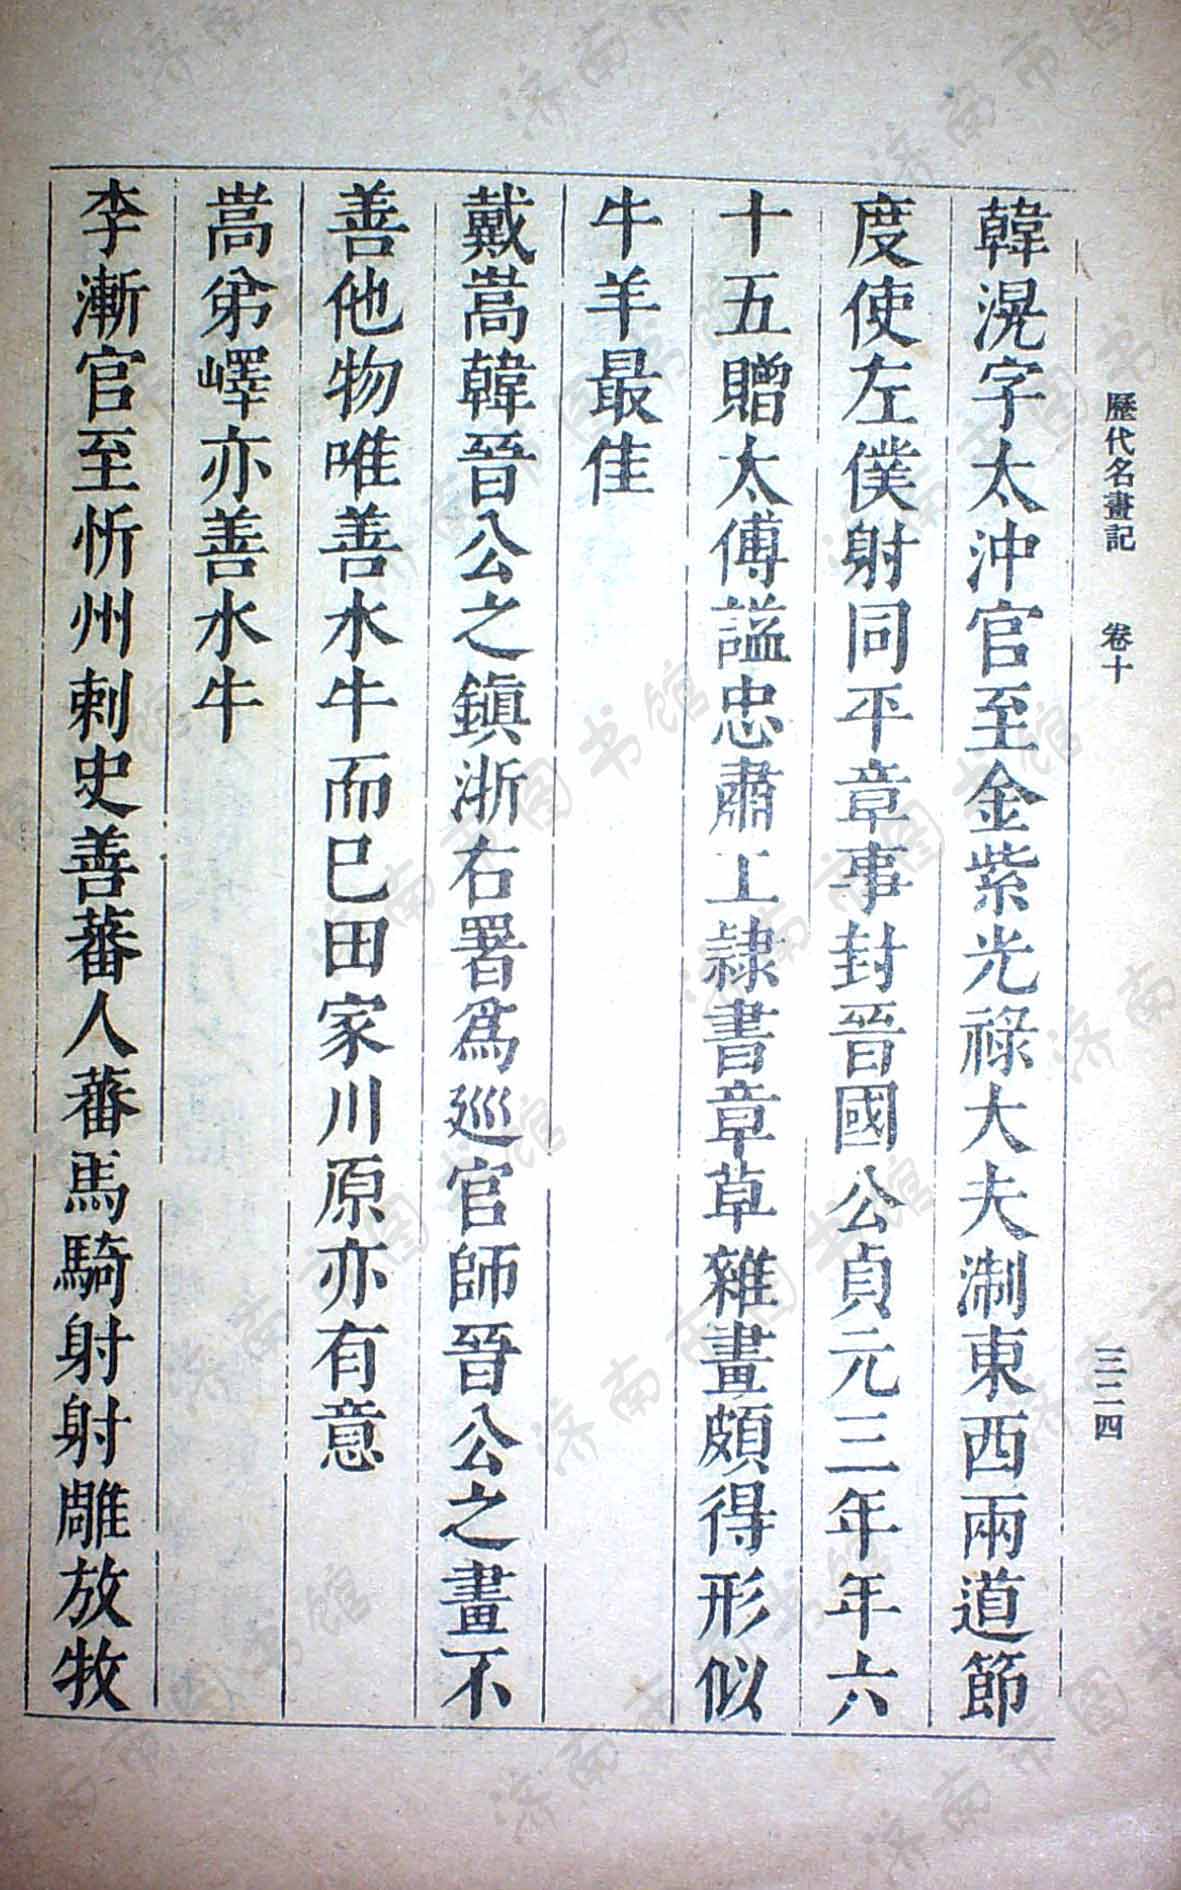 歷代名畫記 卷十 三二四
韓滉字太沖官至金紫光祿大夫淛東西兩道節
度使左僕射同平章事封晉國公貞元三年年六
十五贈太傅謚忠肅工隷書章草雜畫頗得形似
牛羊最佳
戴嵩韓晉公之鎮浙右署爲廵官師晉公之畫不
善他物唯善水牛而巳田家川原亦有意
嵩弟嶧亦善水牛
李漸官至忻州刺史善蕃人蕃馬騎射射雕放牧
济南市图书馆